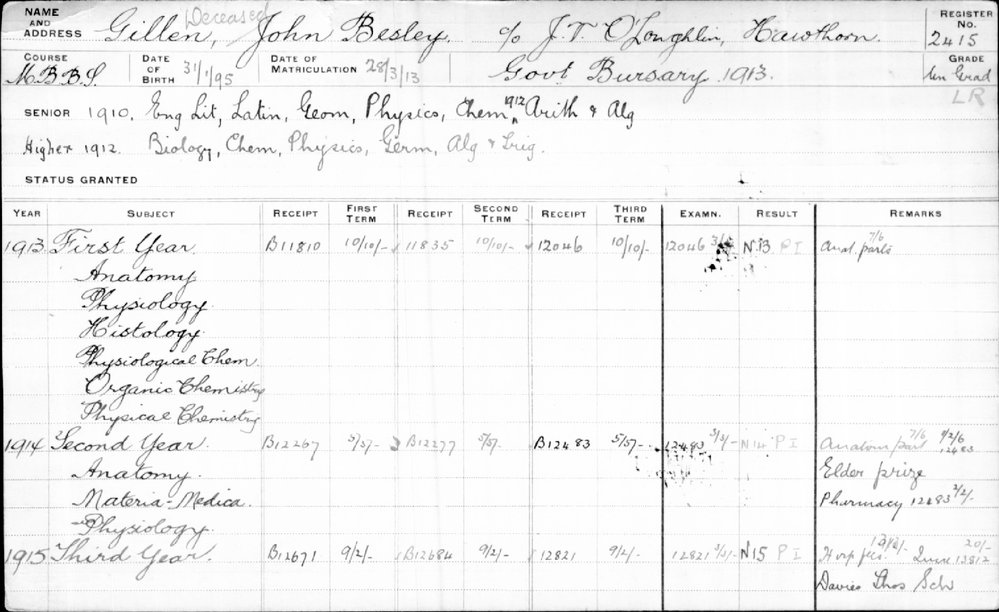 NAME AND ADDRESS Gillen, Deceased John Besley. c/o J. T. O'Loughlin, Hawthorn. REGISTER No. 2415
COURSE M.B.B.S. DATE OF BIRTH 31/1/95 DATE OF MATRICULATION 28/3/13 Govt Bursary 1913. GRADE Un Grad
LR
SENIOR 1910. Eng Lit, Latin, Geom, Physics, Chem, 1912 Arith & Alg
Higher 1912. Biology, Chem, Physics, Germ, Alg & Trig.
STATUS GRANTED
YEAR SUBJECT RECEIPT FIRST TERM RECEIPT SECOND TERM RECEIPT THIRD TERM EXAMN. RESULT REMARKS
1913 First Year. B11810 10/10/- 11835 10/10/- 12046 10/10/- 12046 N.13 P I Anat. parts 7/6
Anatomy
Physiology.
Histology.
Physiological Chem.
Organic Chemistry
Physical Chemistry
1914 Second Year. B12267 5/5/- B12277 5/5/- B12483 5/5/- 12483 N14 P I Anatom part 7/6 12483
Anatomy. Elder prize
Materia-Medica. Pharmacy 12483 2/2/-
Physiology.
1915 Third Year. B12671 9/2/- B12684 9/2/- 12821 9/2/- 12821 N15 P I Hosp fees 20/- 13812
Davies Thos Sch